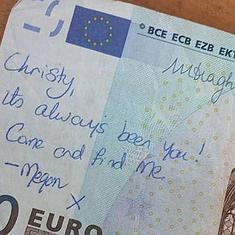 © BCE ECB EZB EKT
Christy,
its always been you!
Come and find me.
- Megan
X
0 EURO